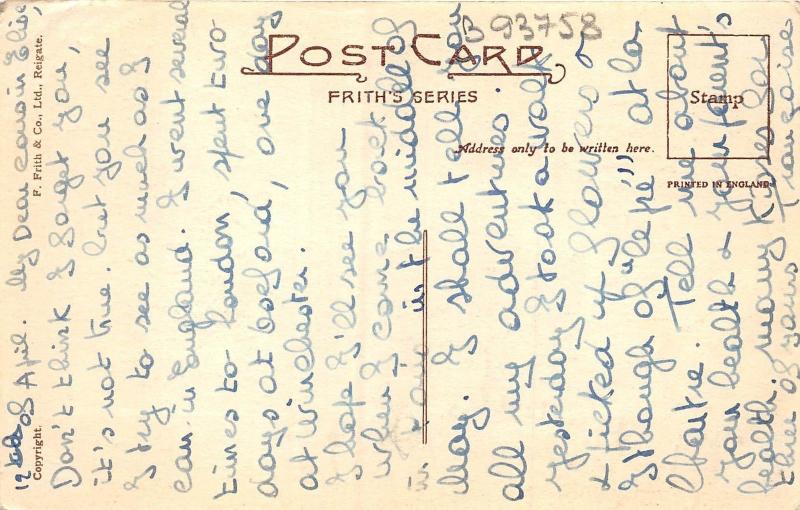 B 93758
POST CARD
FRITH'S SERIES
Address only to be written here.
Stamp
PRINTED IN ENGLAND
Copyright.
F. Frith & Co., Ltd., Reigate.
12th of April. My Dear cousin Elise,
Don't think I forget you,
it's not true. but you see
I try to see as much as I
can in England. I went several
times to London, spent two
days at Oxford, one day
at Winchester.
I hope I'll see you
when I come back
in the middle of
May. I shall tell you
all my adventures.
yesterday I took a walk
& picked up flowers &
I though of "le pré" at la
Tell me about
your health & your parent's
health. many kisses for
three of yours Françoise